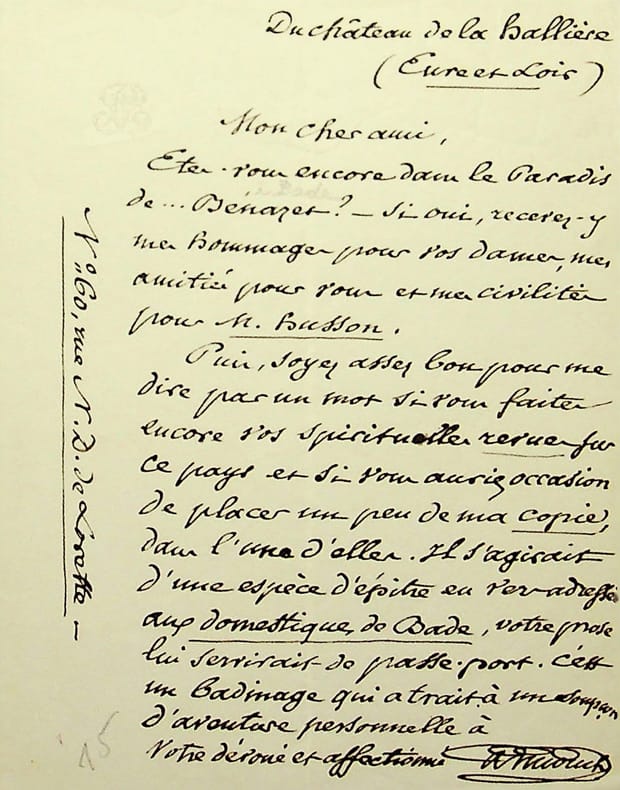 Du château de la hallière
(Eure et Loir)
Mon cher ami,
Etes-vous encore dans le Paradis
de... Bénazet? — Si oui, recevez-y
mes hommages pour vos dames, mes
amitiés pour vous et mes civilités
pour M. husson.
Puis, soyez assez bon pour me
dire par un mot si vous faites
encore vos spirituelles revues sur
ce pays et si vous auriez occasion
de placer un peu de ma copie,
dans l'une d'elles. Il s'agirait
d'une espèce d'épître en vers adressée
aux domestiques de Bade, votre prose
lui servirait de passe-port. C'est
un badinage qui a trait à un soupçon
d'aventure personnelle à
Votre dévoué et affectionné
N° 60, rue N. D. de Lorette —
15